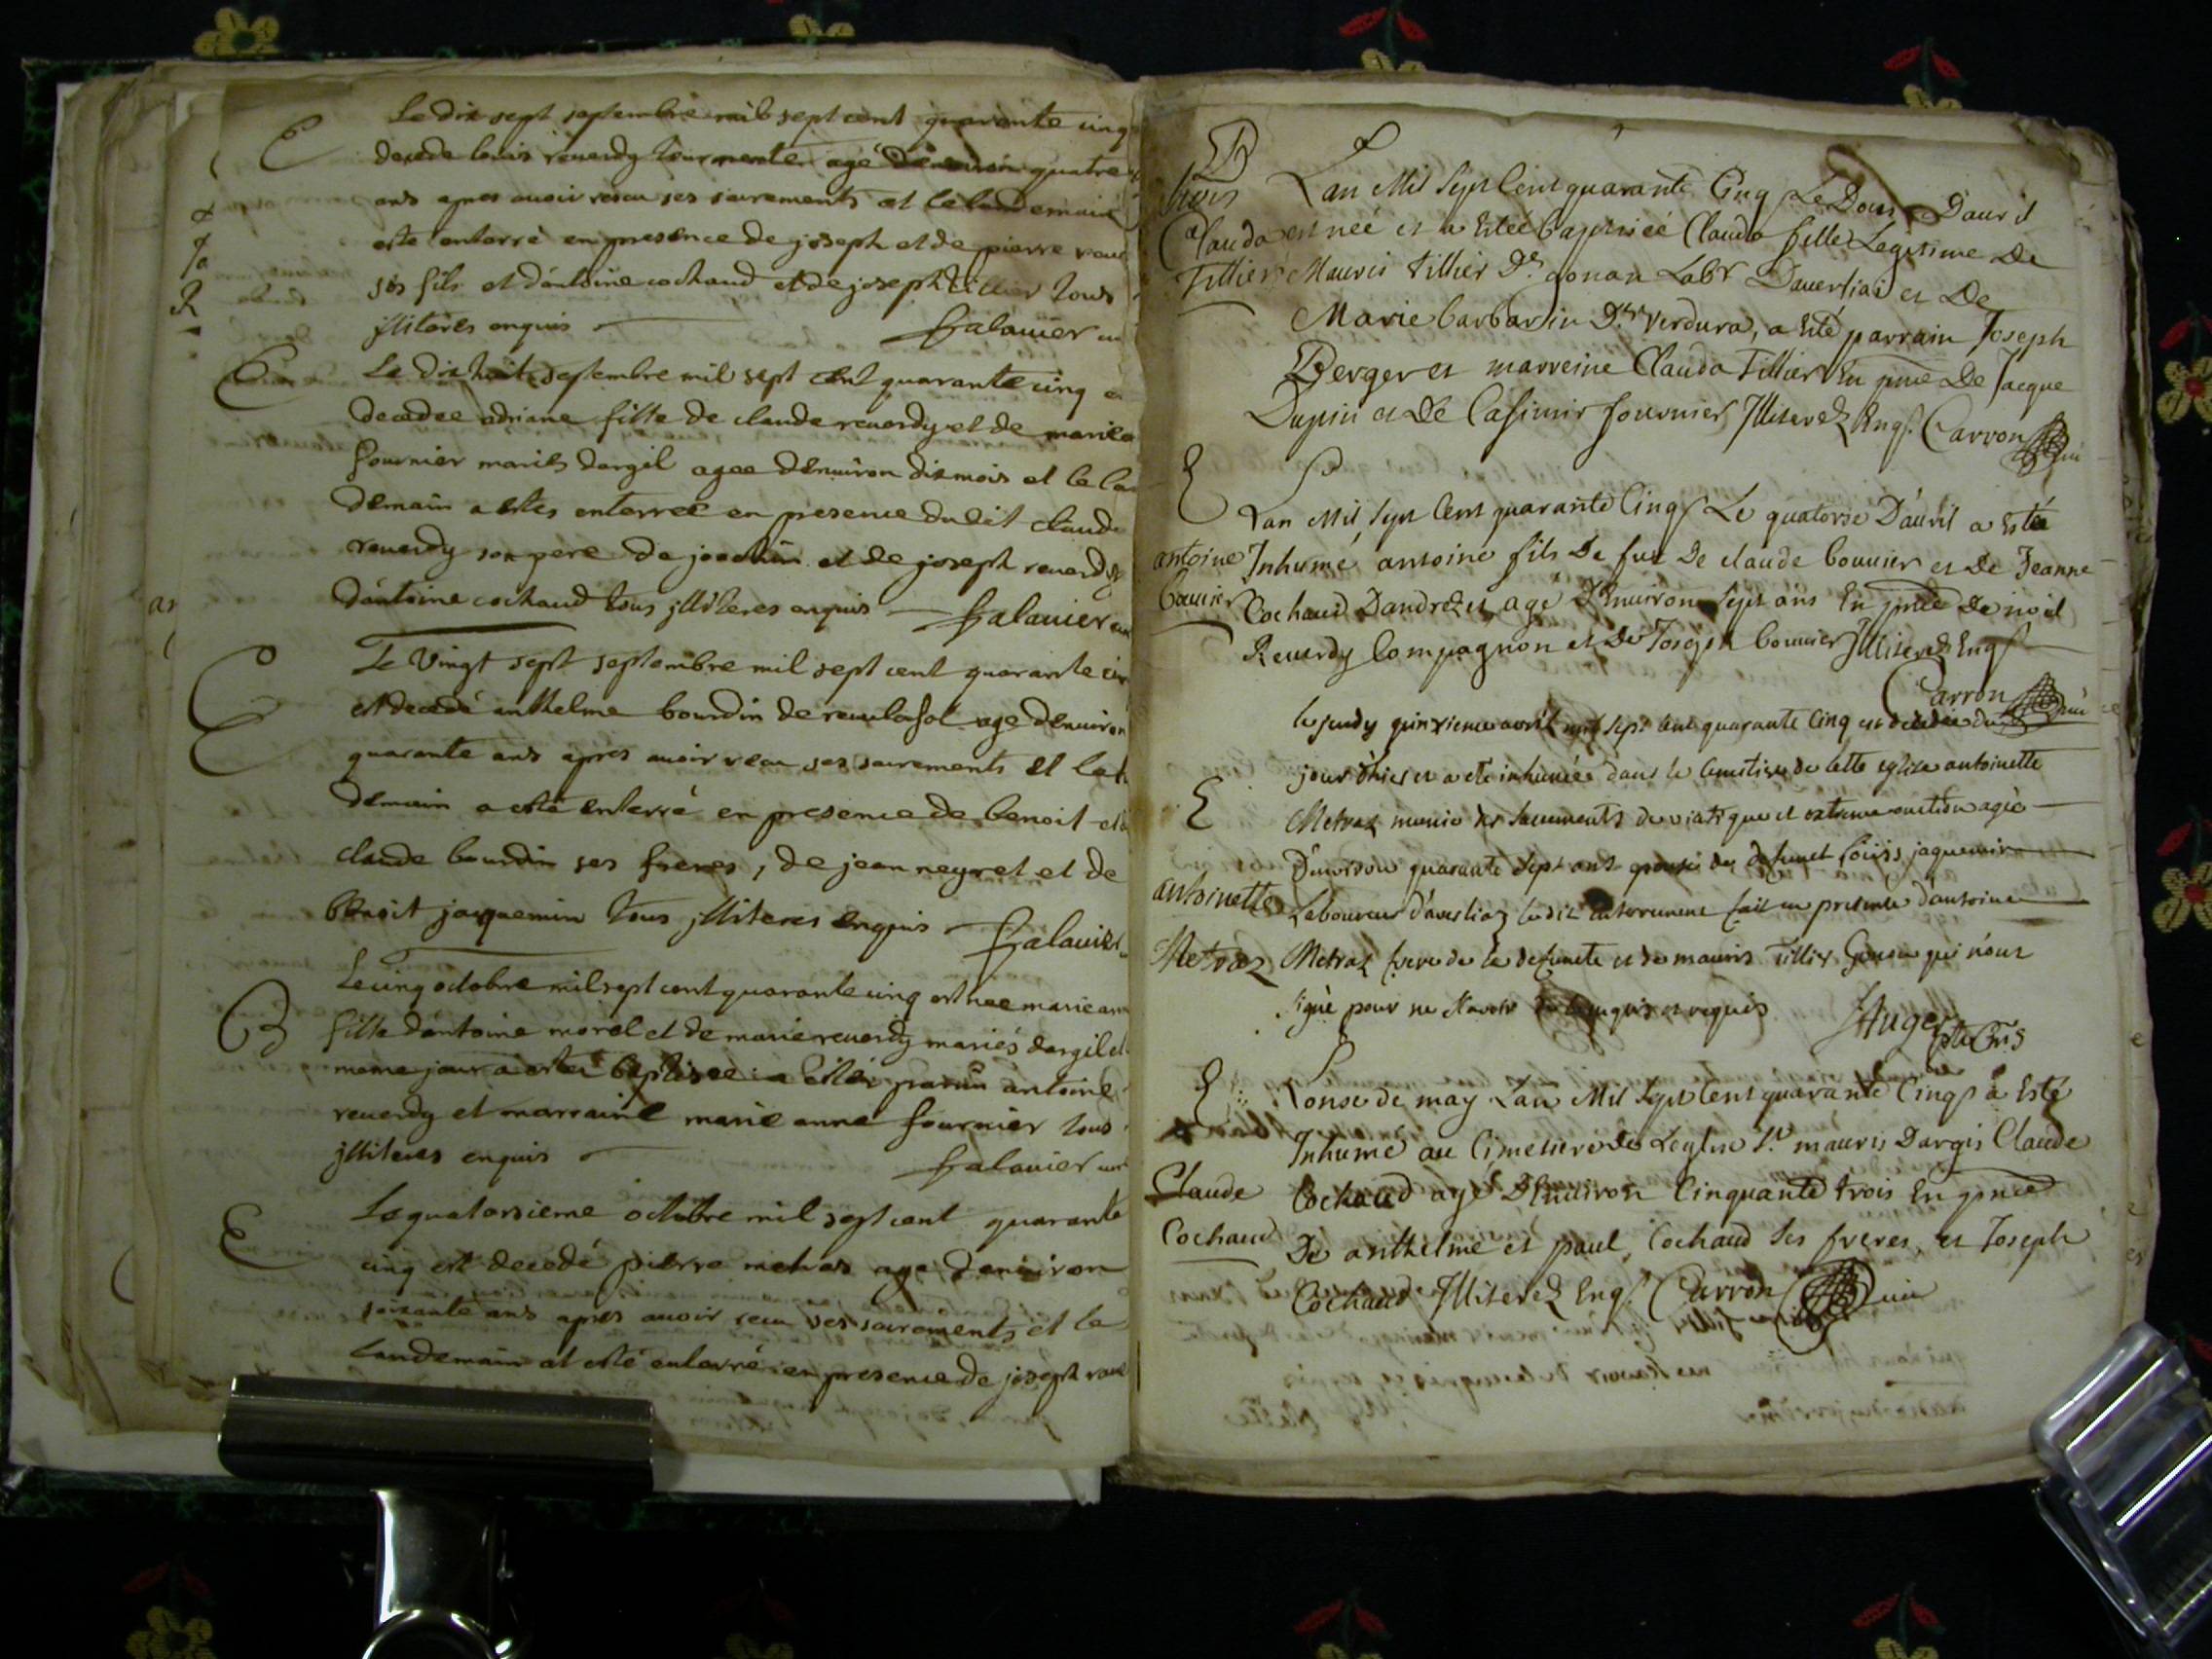 E
Le dix sept septembre mil sept cent quarante cinq
decede louis reuerdy tourmentey agé denuiron quatre
ans apres auoir receu ses sacrements et le landemain
esté enterré en presence de joseph et de pierre reue
ses fils et dantoine cochaud et de joseph tillier tous
jlliteres enquis
Balauier
E
Le dix huit septembre mil sept cent quarante cinq
decedee adriane fille de claude reuerdy et de marie
fournier mariés dargil agee denuiron dix mois et le la
demain a estes enterree en presence dudit claude
reuerdy son pere de joachim et de joseph reuerdy
dantoine cochaud tous jlliteres enquis
Balauier
E
Le vingt sept septembre mil sept cent quarante
est decedé anthelme bourdin de age denuiron
quarante ans apres auoir receu ses sacrements et le
demain a esté enterré en presence de benoit et
claude bourdin ses freres, de jean neyret et de
benoit jaquemin tous jlliteres enquis
Balauier
B
Le cinq octobre mil sept cent quarante cinq est nee marie
fille dantoine morel et de marie reuerdy mariés dargil et
meme jour a estes baptisee a estés parain antoine
reuerdy et marraine marie anne fournier tous
jlliteres enquis
Balauier
E
Le quatorsieme octobre mil sept cent quarante
cinq est decedé pierre metras age denuiron
soixante ans apres auoir receu ses sacrements et le
landemain at esté enterré en presence de joseph
B
Lan Mil Sept Cent quarante Cinq Le Dous D'auril
Clauda est neé et a Estéé baptiséé Clauda fille Legitime De
Tillier Mauris tillier Dt gonan Labr Dauersiaz et De
Marie barbarin Dte Verdura, a Esté parrain Joseph
Berger et marreine Clauda Tillier En pnce De Jacque
Dupin et De Casimir fournier Illiterez Enqs. Carron
E
Lan Mil Sept Cent quarante Cinq Le quatorse D'auril a Esté
antoine Inhumé antoine fils De fut De claude bouuier et De Jeanne
bouuier Cochaud Dandrez et agé D'Enuiron Sept ans En pnce De noël
Reuerdy Compagnon et De Joseph bouuier Illiterez Enqs
Carron
le jeudy quinzieme avril mil sept cent quarante cinq est decedée du
jour d'hier et a eté inhumée dans le cemetiere de cette eglise antoinette
E
Metraz munie des sacrements de viatique et extreme onction agée
D'environ quarante sept ans epouse de defunct louis jaquemin
antoinette Laboureur d'aversiaz ledit enterrement fait en presence d'antoine
Metraz Metraz frere de la defuncte et de mauris Tillier Gonan qui n'ont
signé pour ne scavoir de ce enquis et requis
JAuger
E
Lonse de may Lan Mil Sept Cent quarante Cinq a Esté
Inhumé au Cimetiere de Leglise St mauris Dargis Claude
Claude Cochaud agé D'Enuiron Cinquante trois En pnce
Cochaud De anthelme et paul Cochaud Ses freres, et Joseph
Cochaud Illiterez Enqs. Carron